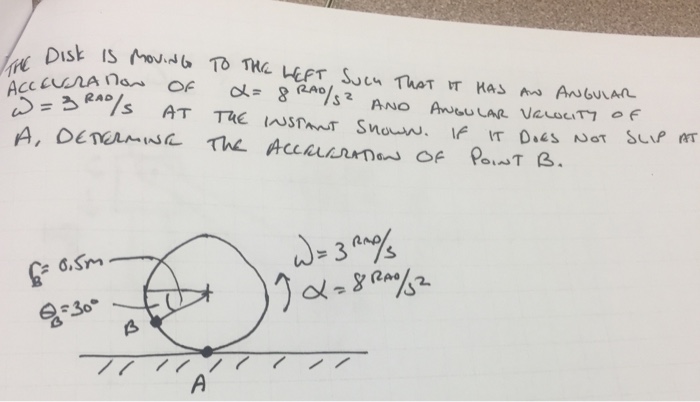 THE DISK IS MOVING TO THE LEFT SUCH THAT IT HAS AN ANGULAR
ACCELERATION OF α= 8 RAD/s² AND ANGULAR VELOCITY OF
ω = 3 RAD/s AT THE INSTANT SHOWN. IF IT DOES NOT SLIP AT
A, DETERMINE THE ACCELERATION OF POINT B.
r_B= 0.5m
θ_B=30°
ω= 3 RAD/s
α= 8 RAD/s²
B
A